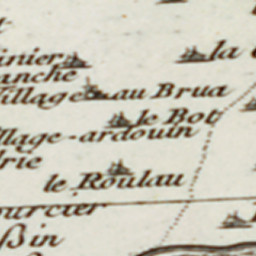 inier
la
anche
Village au Brua
le Bot
llage-ardouin
rie
le Roulau
ourcier
ßin